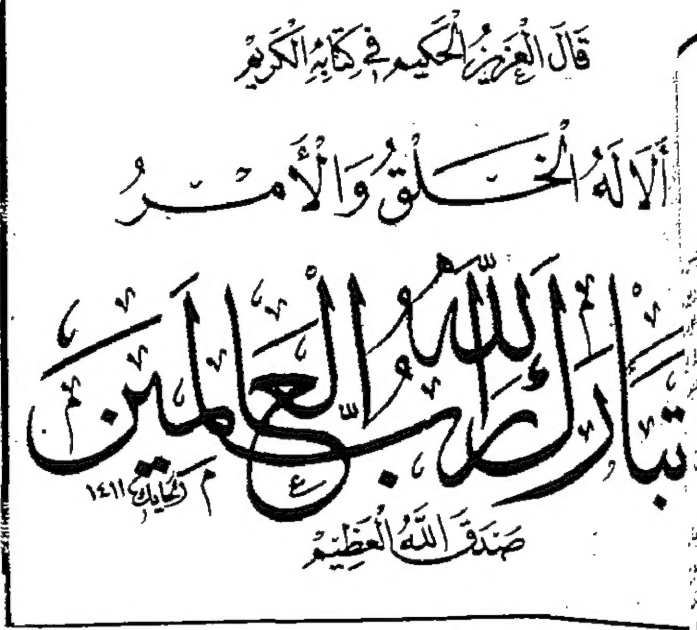 قَالَ الْعَزِيزُ الْحَكِيم فِي كِتَابِهِ الْكَرِيمْ
أَلَا لَهُ الْخَلْقُ وَالْأَمْرُ
تَبَارَكَ اللَّهُ رَبُّ الْعَالَمِينَ
١٤١١
صَدَقَ اللَّهُ الْعَظِيمْ